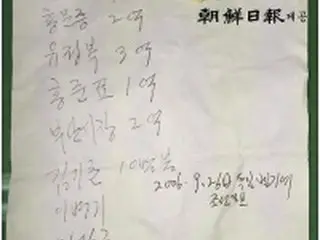 朝鮮日報 제공
홍문종 2억
유정복 3억
홍준표 1억
부산시장 2억
김기춘 10만불
2006. 9. 26日 독일 벨기에
조선일보
이병기